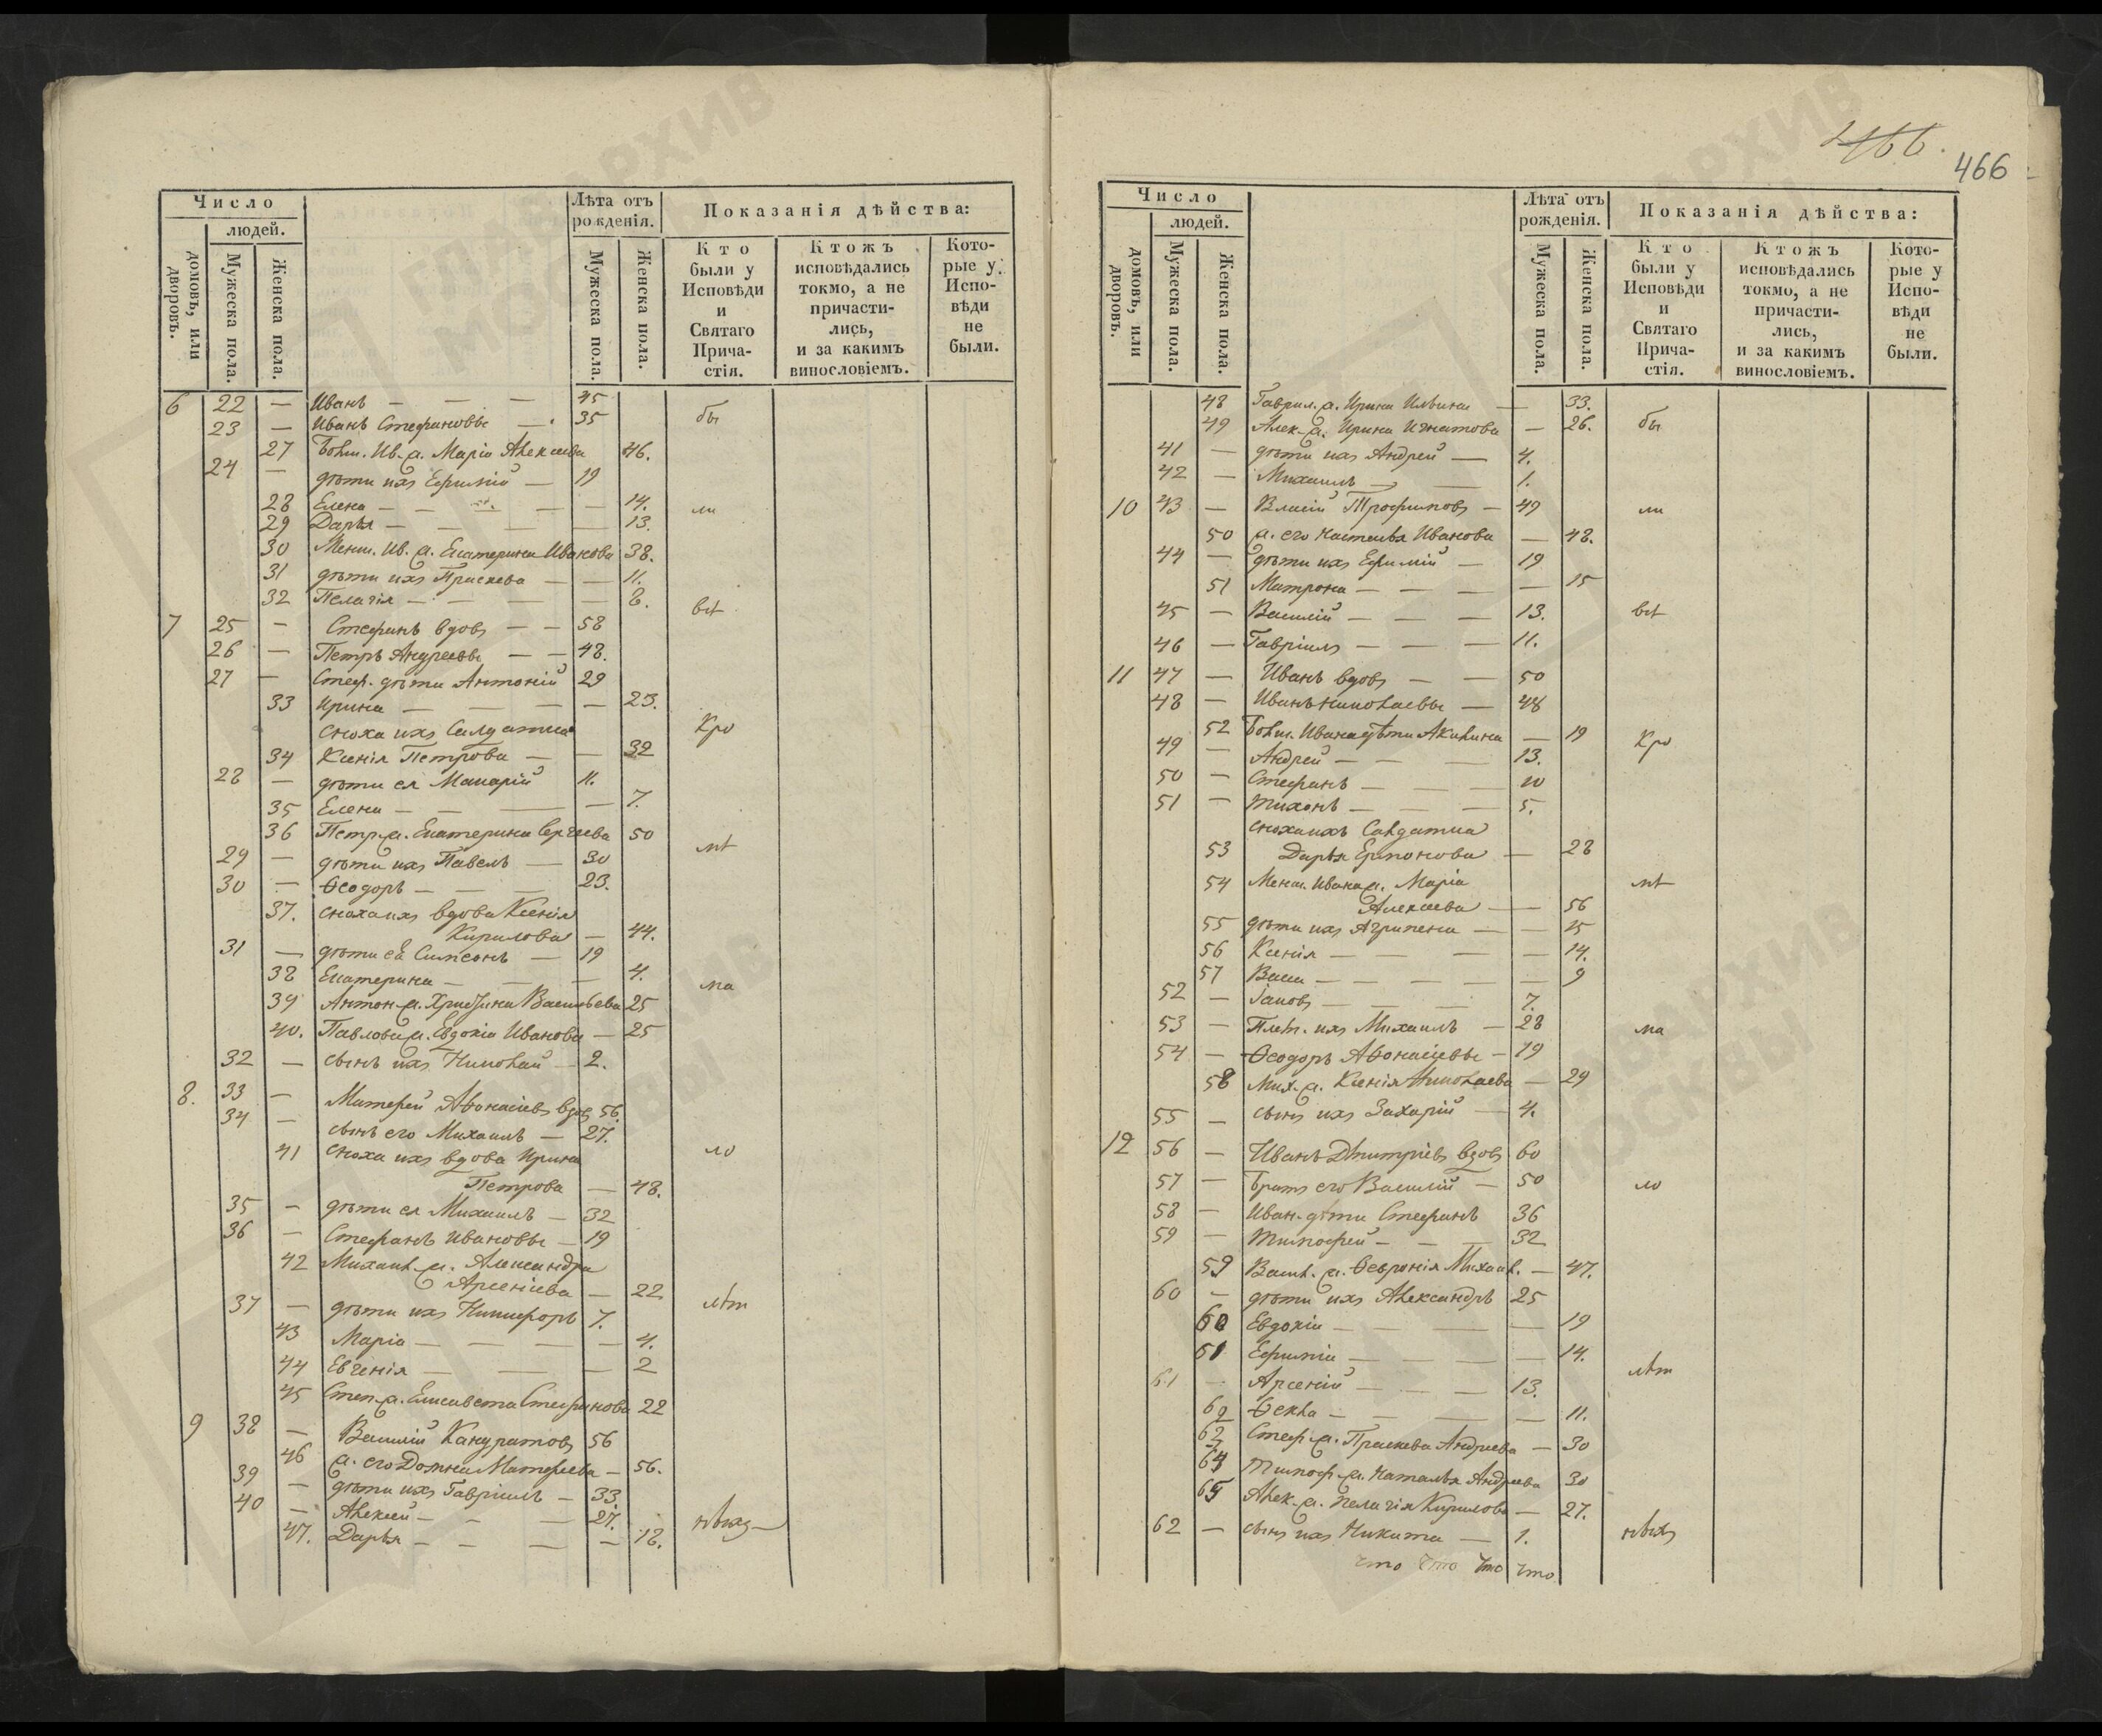 Число
людей.
домовъ, или дворовъ.
Мужеска пола.
Женска пола.
Лѣта отъ рожденія.
Мужеска пола.
Женска пола.
Показанія дѣйства:
Кто были у Исповѣди и Святаго Прича- стія.
Ктожъ исповѣдались токмо, а не причасти- лись, и за какимъ винословіемъ.
Кото- рые у Испо- вѣди не были.
6 22 — Иванъ — — — 45
23 — Иванъ Стефановы — 35 бы
27 Больш. Ив. ж. Марія Алексѣева 46.
24 — дѣти ихъ Ефимій — 19
28 Елена — — — — 14. ли
29 Дарья — — — — 13.
30 Менш. Ив. ж. Екатерина Иванова 38.
31 дѣти ихъ Праскева — — 11.
32 Пелагія — — — — 8. всѣ
7 25 — Стефанъ вдовъ — — 58
26 — Петръ Андреевы — — 48.
27 — Стеф. дѣти Антоній 29
33 Ирина — — — — 23.
сноха ихъ Салдатка кро
34 Ксенія Петрова — — 32
28 — дѣти ея Макарій 11.
35 Елена — — — — 7.
36 Петр. ж. Екатерина Сергѣева 50
29 — дѣти ихъ Павелъ — 30 мѣ
30 — Ѳеодоръ — — — 23.
37. сноха ихъ вдова Ксенія
Кирилова — 44.
31 — дѣти ея Симеонъ — 19
38 Екатерина — — — 4. ма
39 Антон. ж. Христина Васильева 25
40. Павлова ж. Евдокія Иванова — 25
32 — сынъ ихъ Николай — 2.
8. 33 — Матфей Аѳонасіевъ вдов 56.
34 — сынъ его Михаилъ — 27.
41 сноха ихъ вдова Ирина ло
Петрова — 48.
35 — дѣти ея Михаилъ — 32
36 — Стефанъ Ивановы — 19
42 Михаил. ж. Александра
Арсеніева — 22
37 — дѣти ихъ Никифоръ 7. лѣт
43 Марія — — — — 4.
44 Евгенія — — — 2
45 Степ. ж. Елисавета Стефанова 22
9 38 — Василій Кандратовъ 56
46 ж. его Домна Матфеева — 56.
39 — дѣти ихъ Гавріилъ — 33.
40 — Алексѣй — — — 27. нѣихъ
47. Дарья — — — — 18.
466.
466
Число
людей.
домовъ, или дворовъ.
Мужеска пола.
Женска пола.
Лѣта отъ рожденія.
Мужеска пола.
Женска пола.
Показанія дѣйства:
Кто были у Исповѣди и Святаго Прича- стія.
Ктожъ исповѣдались токмо, а не причасти- лись, и за какимъ винословіемъ.
Кото- рые у Испо- вѣди не были.
48 Гаврил. ж. Ирина Ильина — 33.
49 Алек. ж. Ирина Игнатова — 26. бы
41 — дѣти ихъ Андрей — 4.
42 — Михаилъ — — 1.
10 43 — Власій Трофимовъ — 49 ли
50 ж. его Наталья Иванова — 48.
44 — дѣти ихъ Ефимій — 19
51 Матрона — — — — 15
45 — Василій — — — 13. всѣ
46 — Гавріилъ — — — 11.
11 47 — Иванъ вдовъ — — 50
48 — Иванъ Николаевы — 48
52 Больш. Ивана дѣти Акилина — 19 кро
49 — Андрей — — — 13.
50 — Стефанъ — — — 10
51 — Тихонъ — — — 5.
сноха ихъ Салдатка
53 Дарья Ермонова — 28
54 Менш. Ивана ж. Марія мѣ
Алексѣева — — 56
55 дѣти ихъ Агрипена — — 15
56 Ксенія — — — — 14.
57 Васса — — — — — 9
52 — Іаковъ — — — 7.
53 — Плем. ихъ Михаилъ — 28 ма
54 — Ѳеодоръ Аѳонасіевы — 19
58 Мих. ж. Ксенія Николаева — 29
55 — сынъ ихъ Захарій — 4.
12 56 — Иванъ Дмитріевъ вдовъ 60
57 — Братъ его Василій — 50 ло
58 — Иван. дѣти Стефанъ 36
59 — Тимофей — — — 32
59 Васил. ж. Ѳевронія Михаил. — 47.
60 — дѣти ихъ Александръ 25
60 Евдокія — — — 19
61 Ефимія — — — — 14. лѣт
61 — Арсеній — — — 13.
62 Ѳекла — — — — 11.
63 Стеф. ж. Праскева Андреева — 30
64 Тимоф. ж. Наталья Андреева 30
65 Алек. ж. Пелагія Кирилова — 27.
62 — сынъ ихъ Никита — 1. нѣихъ
что что что что